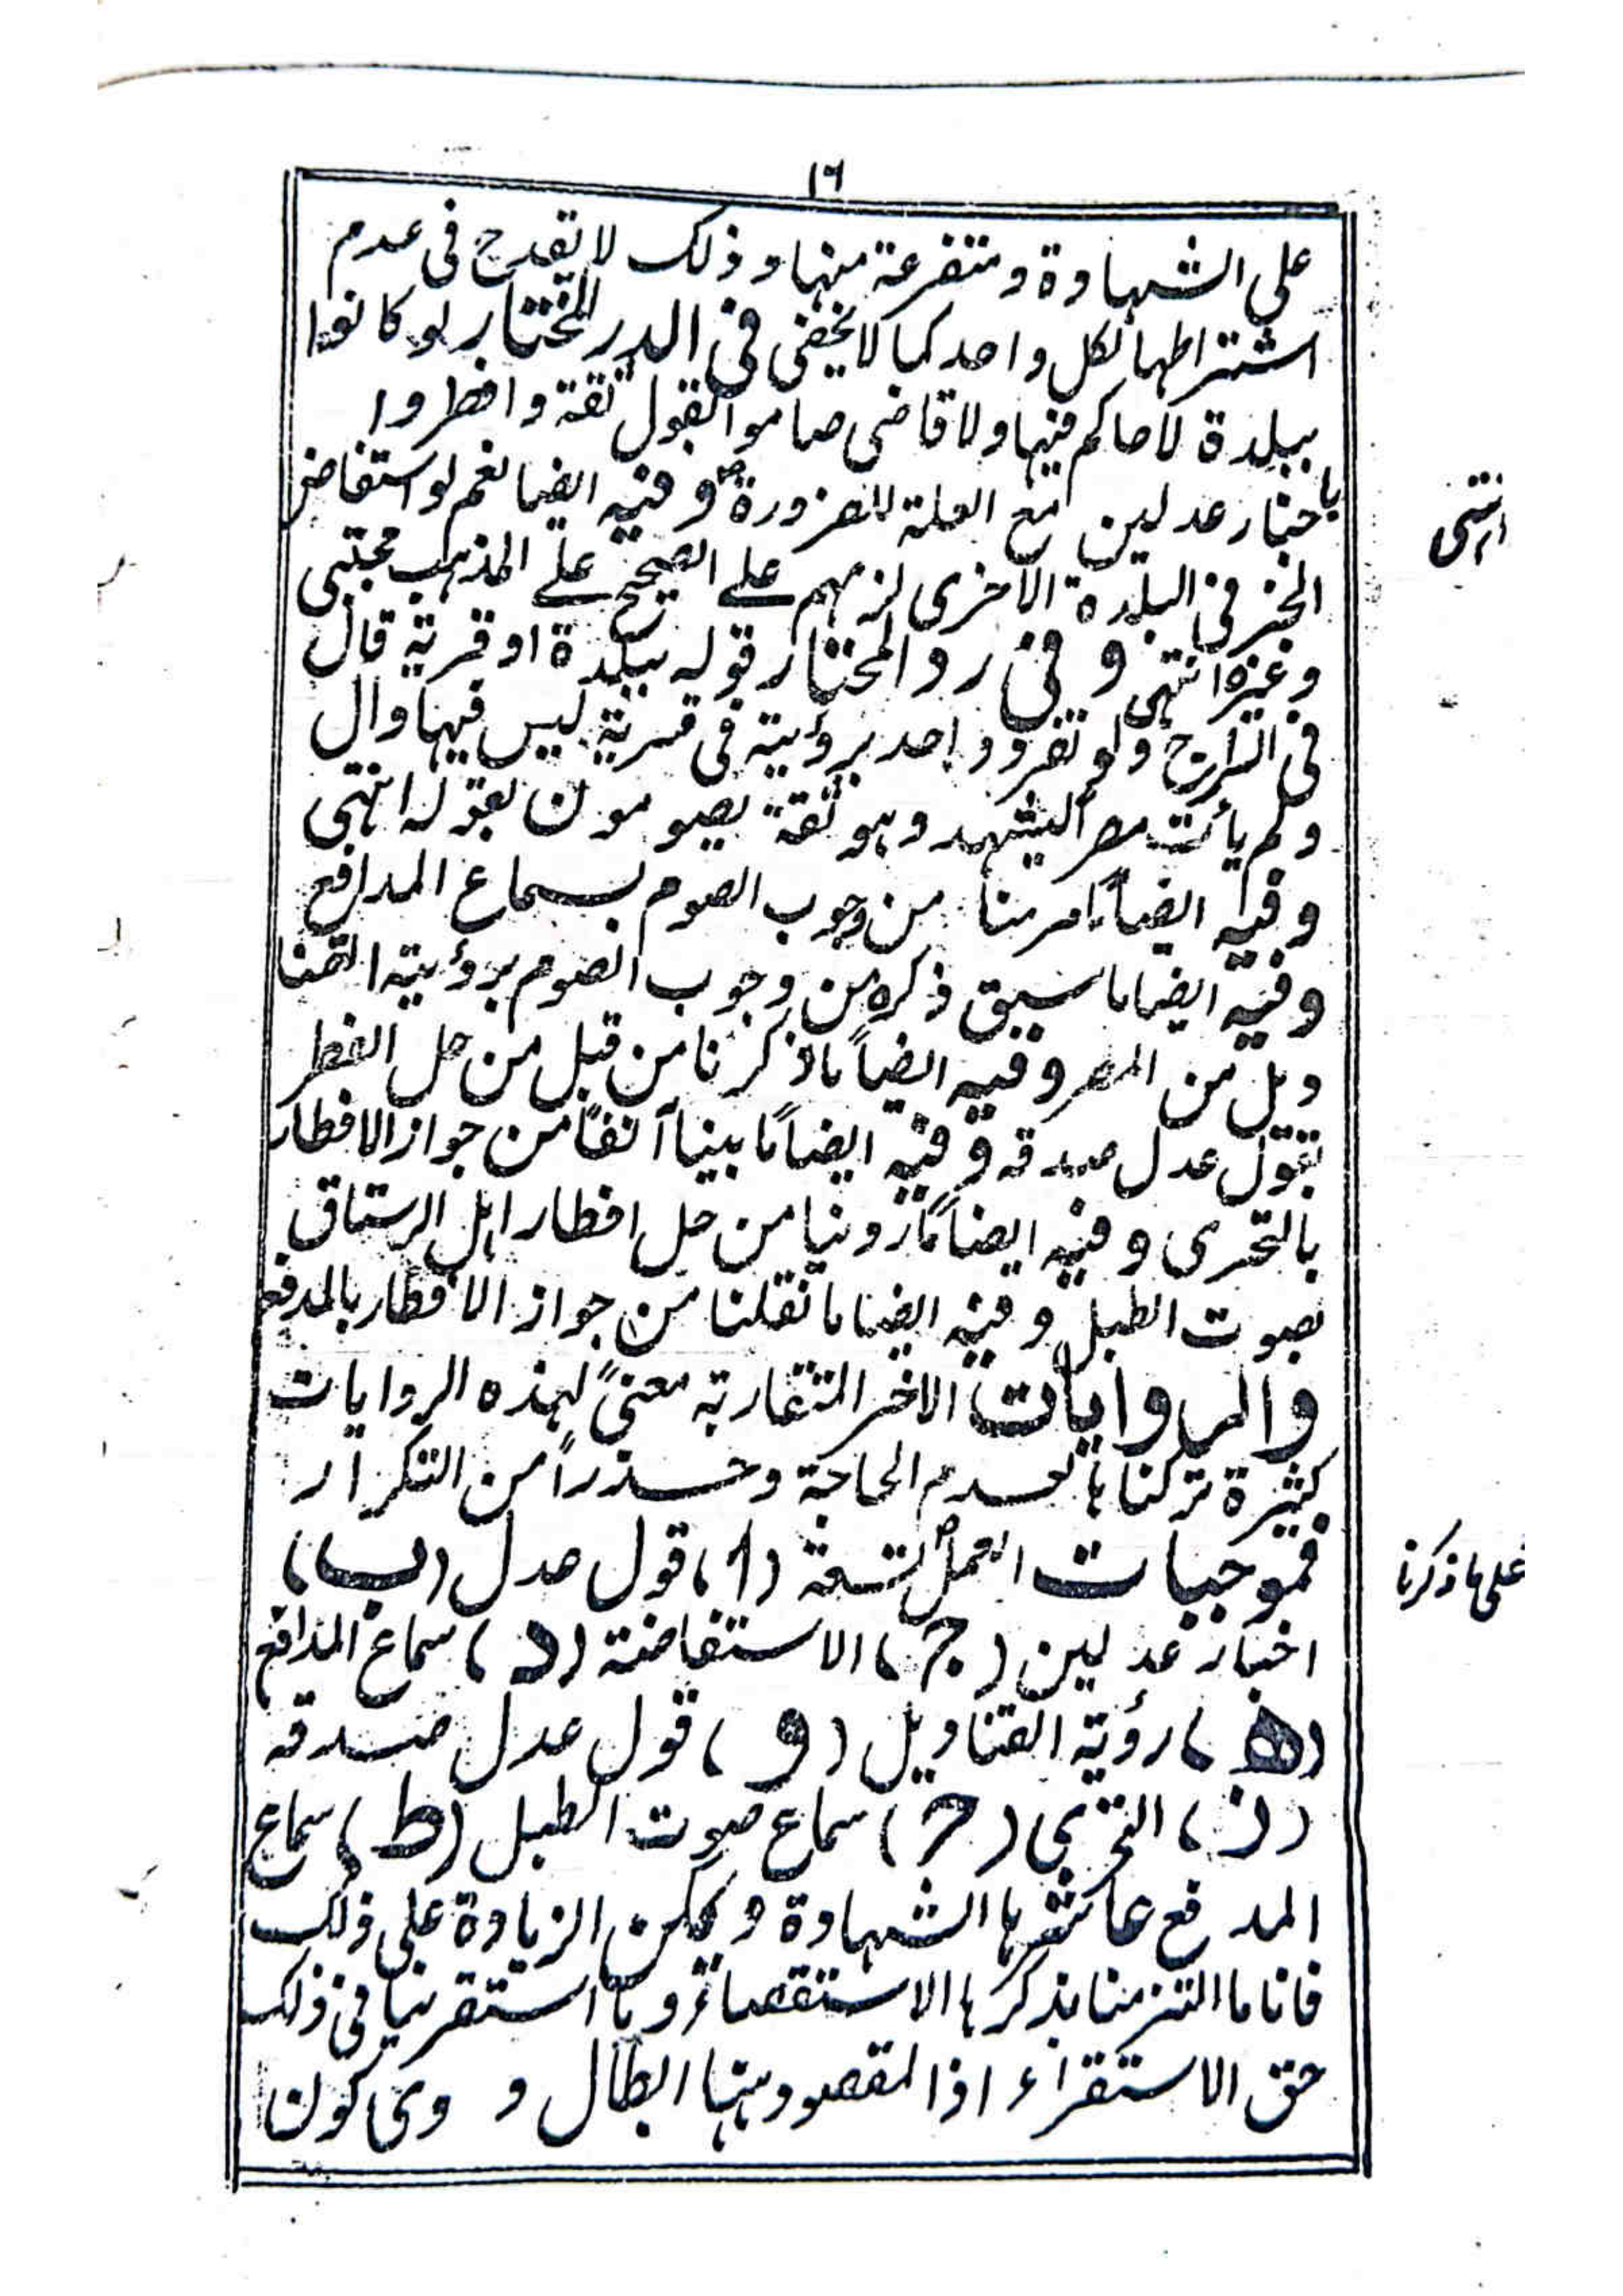 ١٦
على الشهادة ومتفرعة منها وذلك لا تقدح فى عدم
اشتراطها لكل واحد كما لا يخفى فى الدر المختار لو كانوا
ببلدة لا حاكم فيها ولا قاضى صاموا بقول ثقة وافطروا
باخبار عدلين مع العلة للضرورة وفيه ايضا نعم لو استفاض
انتهى
الخبر فى البلدة الاخرى لزمهم على الصحيح على المذهب مجتبى
وغيره انتهى وفى رد المحتار قوله ببلدة او قرية قال
فى السراج ولو تفرد واحد برؤيته فى قرية ليس فيها وال
ولم يأت مصرا ليشهد وهو ثقة يصومون بقوله انتهى
وفيه ايضاً ما مر منا من وجوب الصوم بسماع المدافع
وفيه ايضا ما سبق ذكره من وجوب الصوم برؤيته القنا
ديل من المصر وفيه ايضاً ما ذكرنا من قبل من حل الفطر
بقول عدل صدقه وفيه ايضاً ما بينا آنفاً من جواز الافطار
بالتحرى وفيه ايضاً ما روينا من حل افطار اهل الرستاق
بصوت الطبل وفيه ايضا ما نقلنا من جواز الافطار بالمدفع
والروايات الاخر المتقاربة معنىً لهذه الروايات
كثيرة تركناها لعدم الحاجة وحذراً من التكرار
فموجبات العمل تسعة (ا) قول عدل (ب)
على ما ذكرنا
اخبار عدلين (ج) الاستفاضة (د) سماع المدافع
(ه) رؤية القناديل (و) قول عدل صدقه
(ز) التحرى (ح) سماع صوت الطبل (ط) سماع
المدفع عاشرها الشهادة ويمكن الزيادة على ذلك
فانا ما التزمنا بذكرها الاستقصاء وما استقرينا فى ذلك
حق الاستقراء اذ المقصود ههنا ابطال دعوى كون